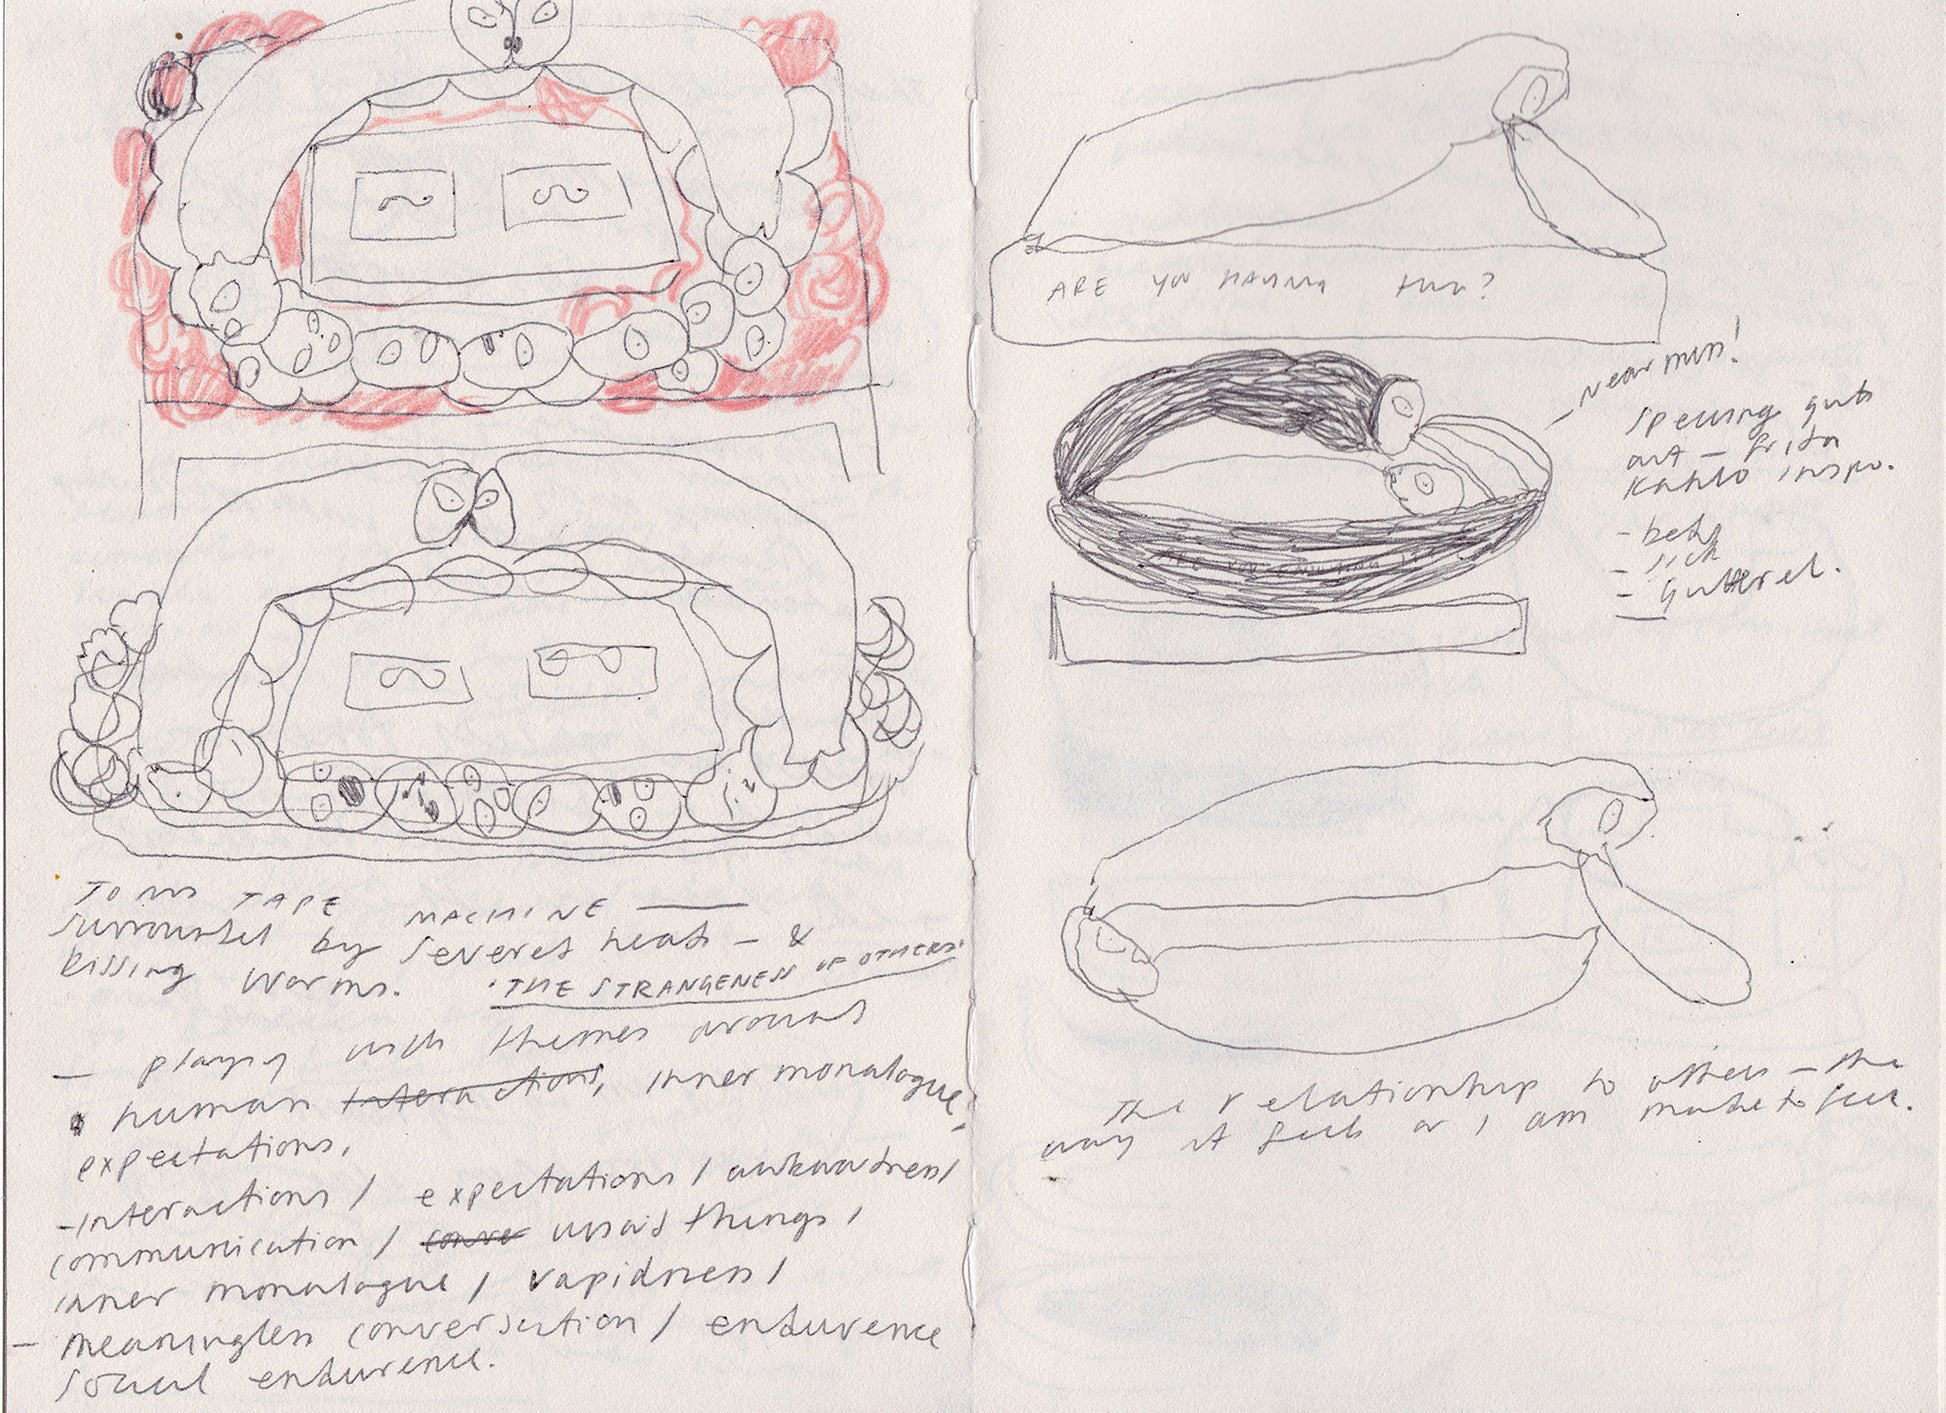 TOMS TAPE MACHINE —
surrounded by severed heads - &
kissing worms.
'THE STRANGENESS OF OTHERS'
— playing with themes around
human interactions, inner monologue,
expectations,
-Interactions / expectations / awkwardness /
communication / conve unsaid things /
inner monologue / vapidness /
- meaningless conversation / endurence
social endurence.
ARE YOU HAVING FUN?
Near miss!
Spewing guts
out - frida
Kahlo inspo.
- beds
- sick
- gutteral.
The relationship to others - the
way it feels or I am made to feel.